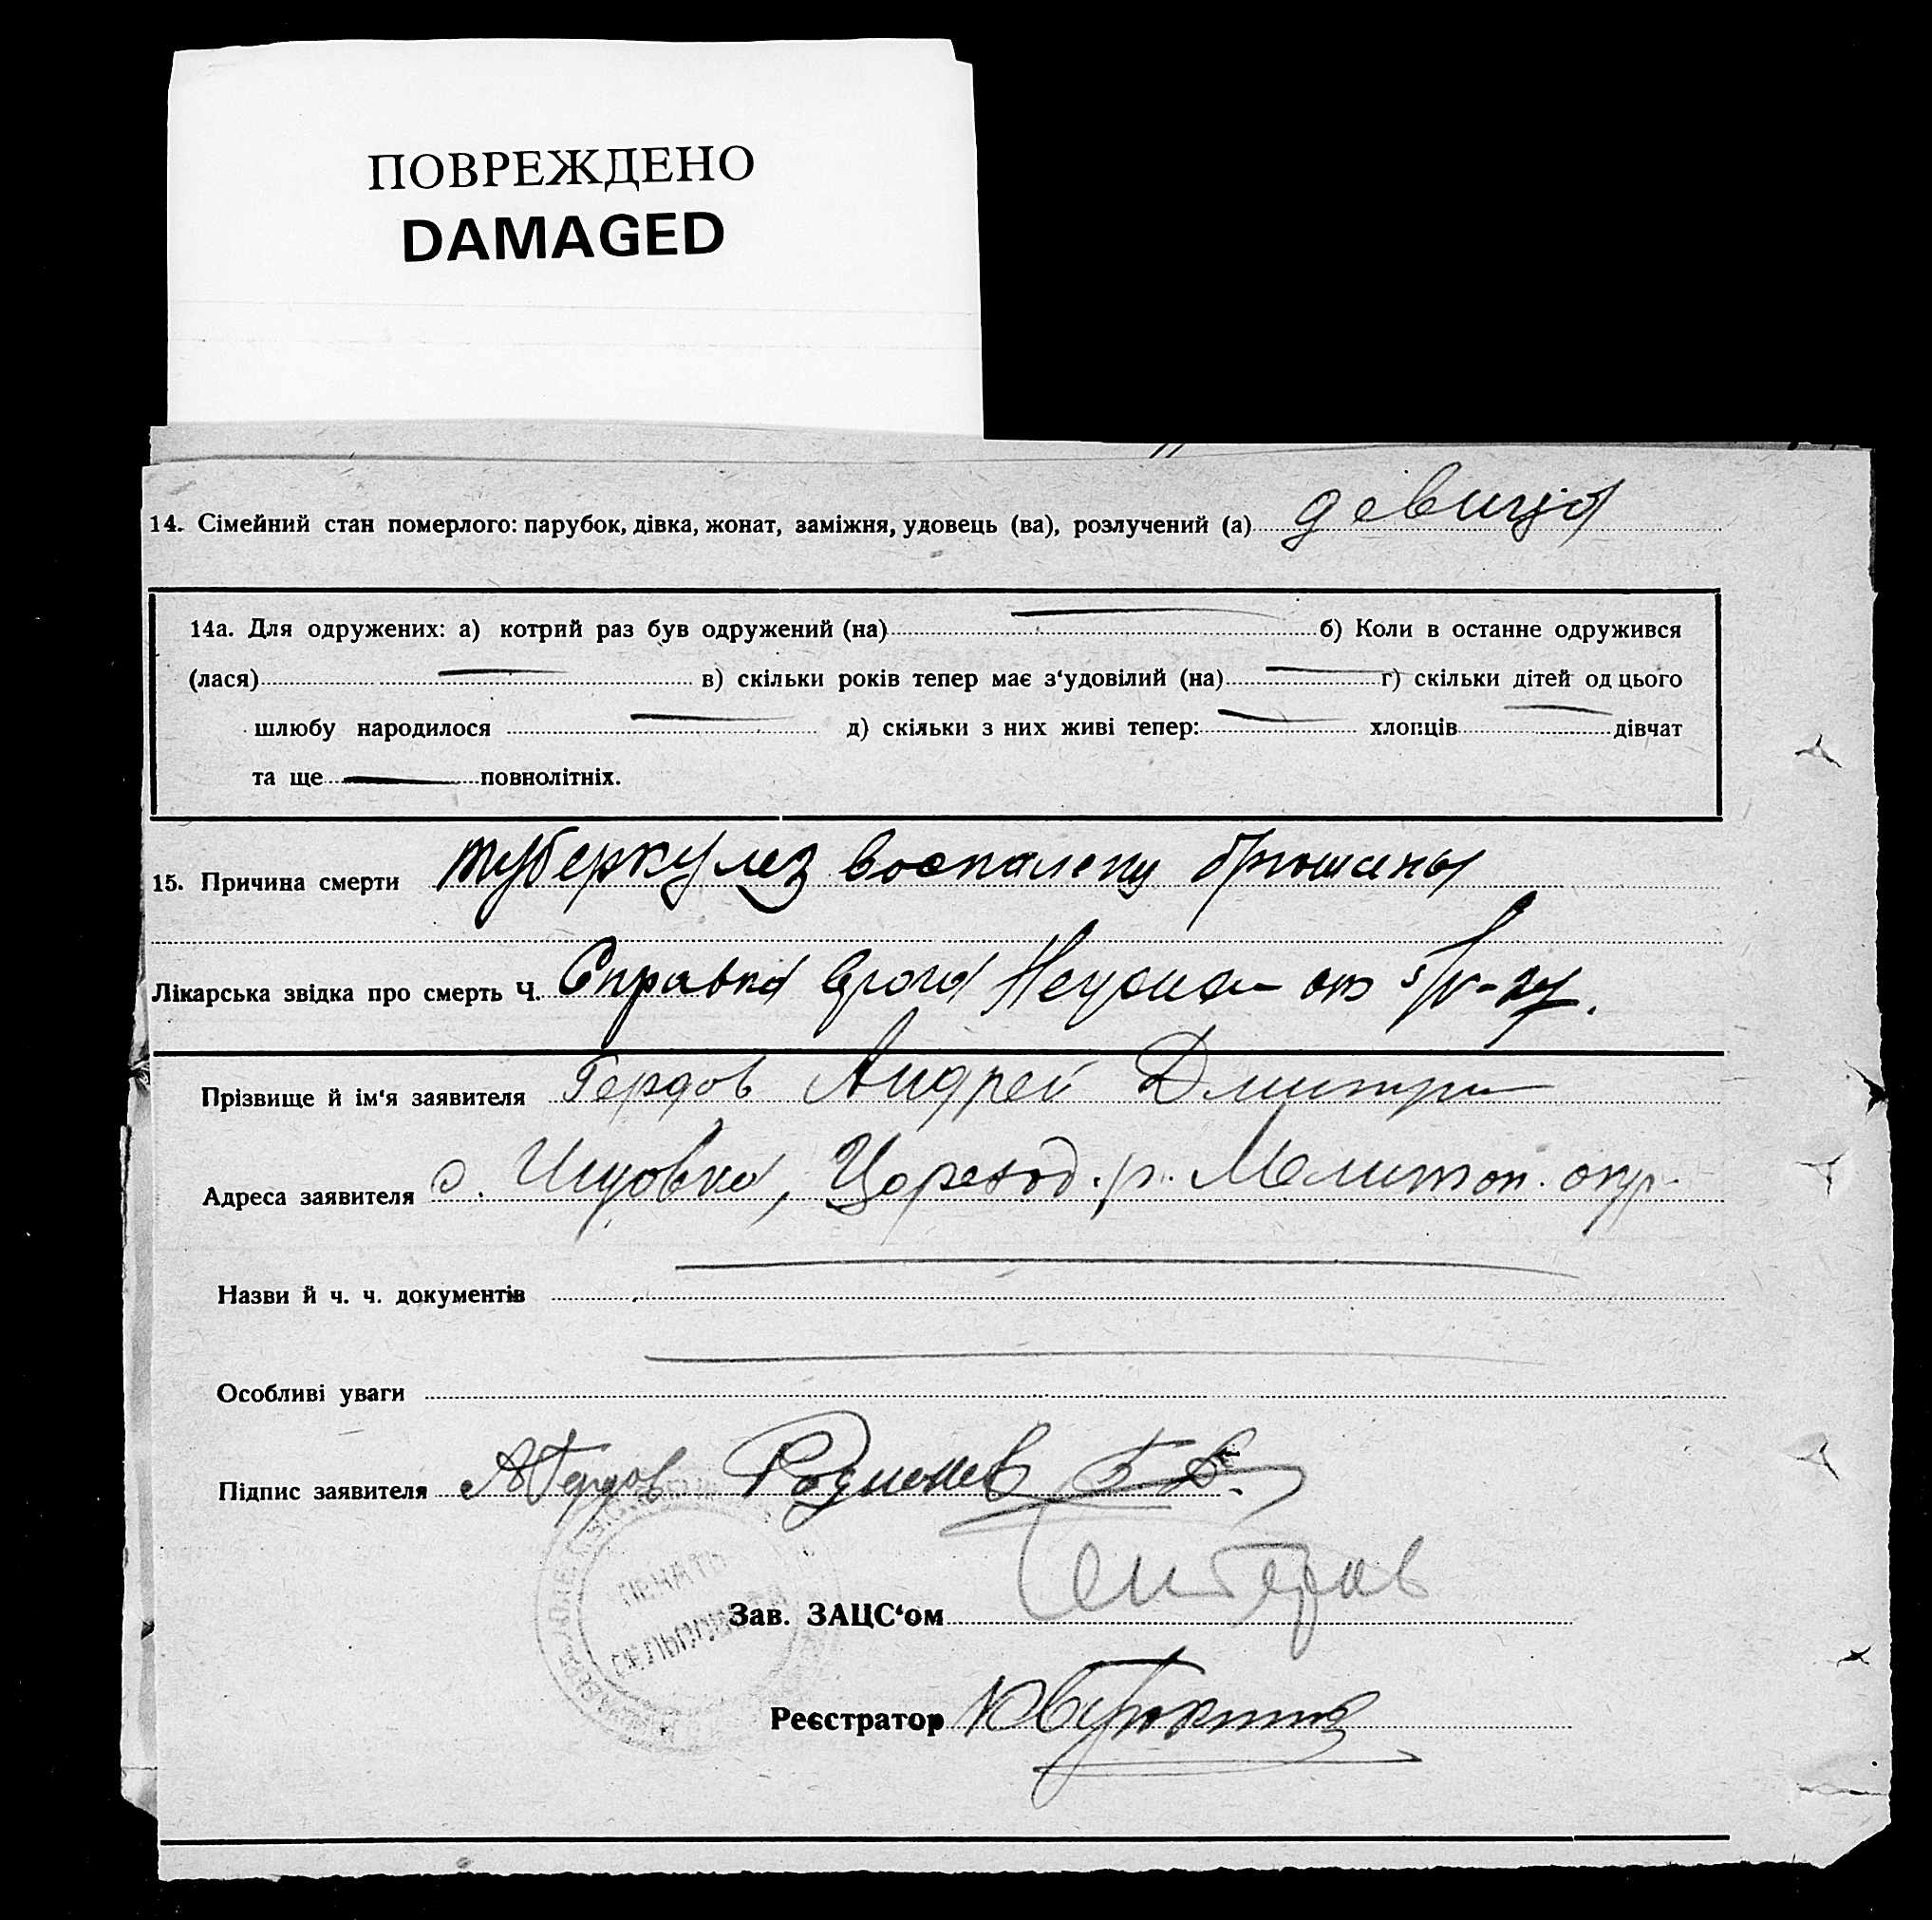 ПОВРЕЖДЕНО
DAMAGED
14. Сімейний стан померлого: парубок, дівка, жонат, заміжня, удовець (ва), розлучений (а) девица
14а. Для одружених: а) котрий раз був одружений (на) б) Коли в останне одружився
(лася) в) скільки років тепер має з‘удовілий (на) г) скільки дітей од цього
шлюбу народилося д) скільки з них живі тепер: хлопців дівчат
та ще повнолітніх.
15. Причина смерти туберкулез
Лікарська звідка про смерть Ч. Справка врача от
Прізвище й ім‘я заявителя Гердов Андрей Дмитри
Адреса заявителя с. р. Мелитоп. окр.
Назви й ч. ч. документів
Особливі уваги
Підпис заявителя АГердов Родионов
ПЕЧАТЬ
СЕЛЬСОВЕТА
Зав. ЗАЦС‘ом
Реєстратор